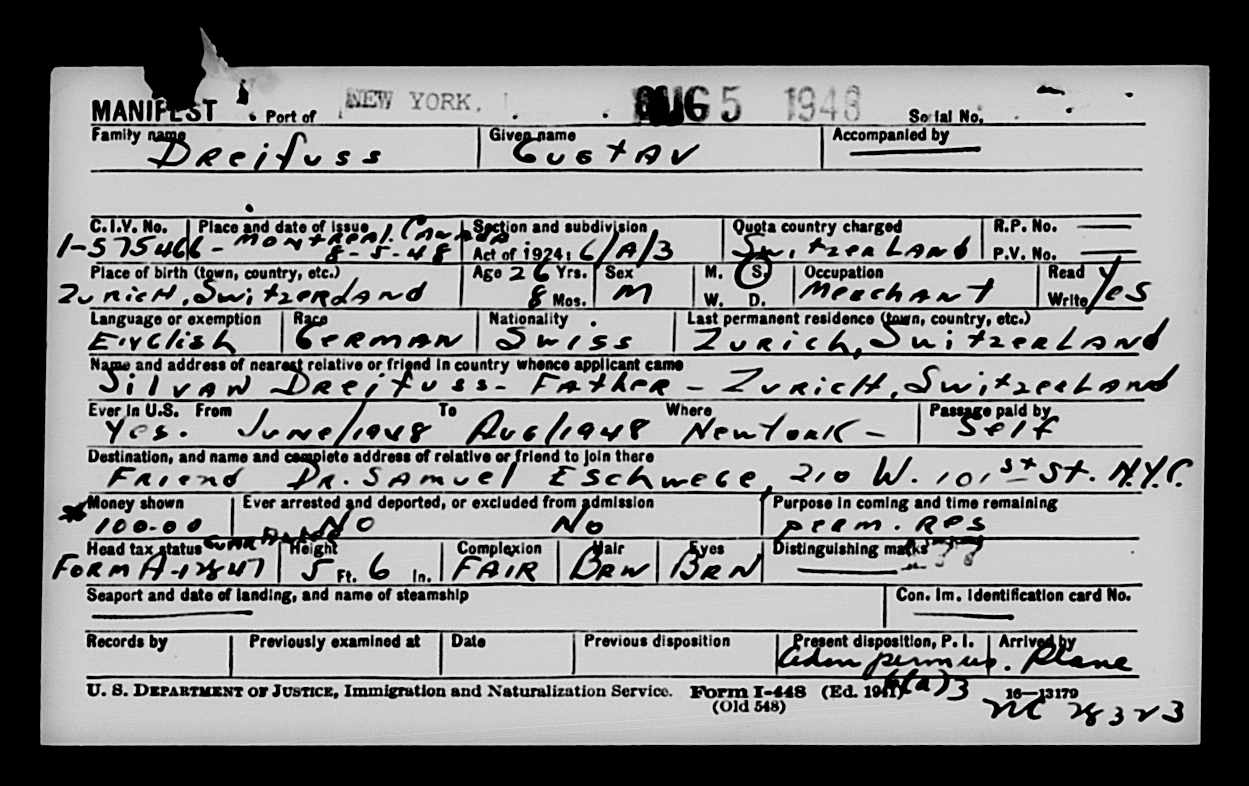 MANIFEST Port of NEW YORK. AUG 5 1948 Serial No.
Family name Given name Accompanied by
Dreifuss Gustav
C.I.V. No. Place and date of issue Section and subdivision Quota country charged R.P. No.
1-575466 - Montreal. Canada 8-5-48 Act of 1924: 6/A/3 Switzerland P.V. No.
Place of birth (town, country, etc.) Age 26 Yrs. Sex M. S. Occupation Read
Zurich, Switzerland 8 Mos. M W. D. Merchant Write Yes
Language or exemption Race Nationality Last permanent residence (town, country, etc.)
English German Swiss Zurich, Switzerland
Name and address of nearest relative or friend in country whence applicant came
Silvan Dreifuss - Father - Zurich, Switzerland
Ever in U.S. From To Where Passage paid by
Yes. June/1948 Aug/1948 New York - Self
Destination, and name and complete address of relative or friend to join there
Friend Dr. Samuel Eschwege, 210 W. 101st St. N.Y.C.
Money shown Ever arrested and deported, or excluded from admission Purpose in coming and time remaining
100.00 No No perm. res
Head tax status Height Complexion Hair Eyes Distinguishing marks
Form A-12847 5 Ft. 6 In. FAIR BRW BRN
Seaport and date of landing, and name of steamship Con. Im. Identification card No.
Records by Previously examined at Date Previous disposition Present disposition, P. I. Arrived by
adm perm us. Plane
U. S. DEPARTMENT OF JUSTICE, Immigration and Naturalization Service. Form I-448 (Ed. 1941) 6(a)3 16—13179
(Old 548)